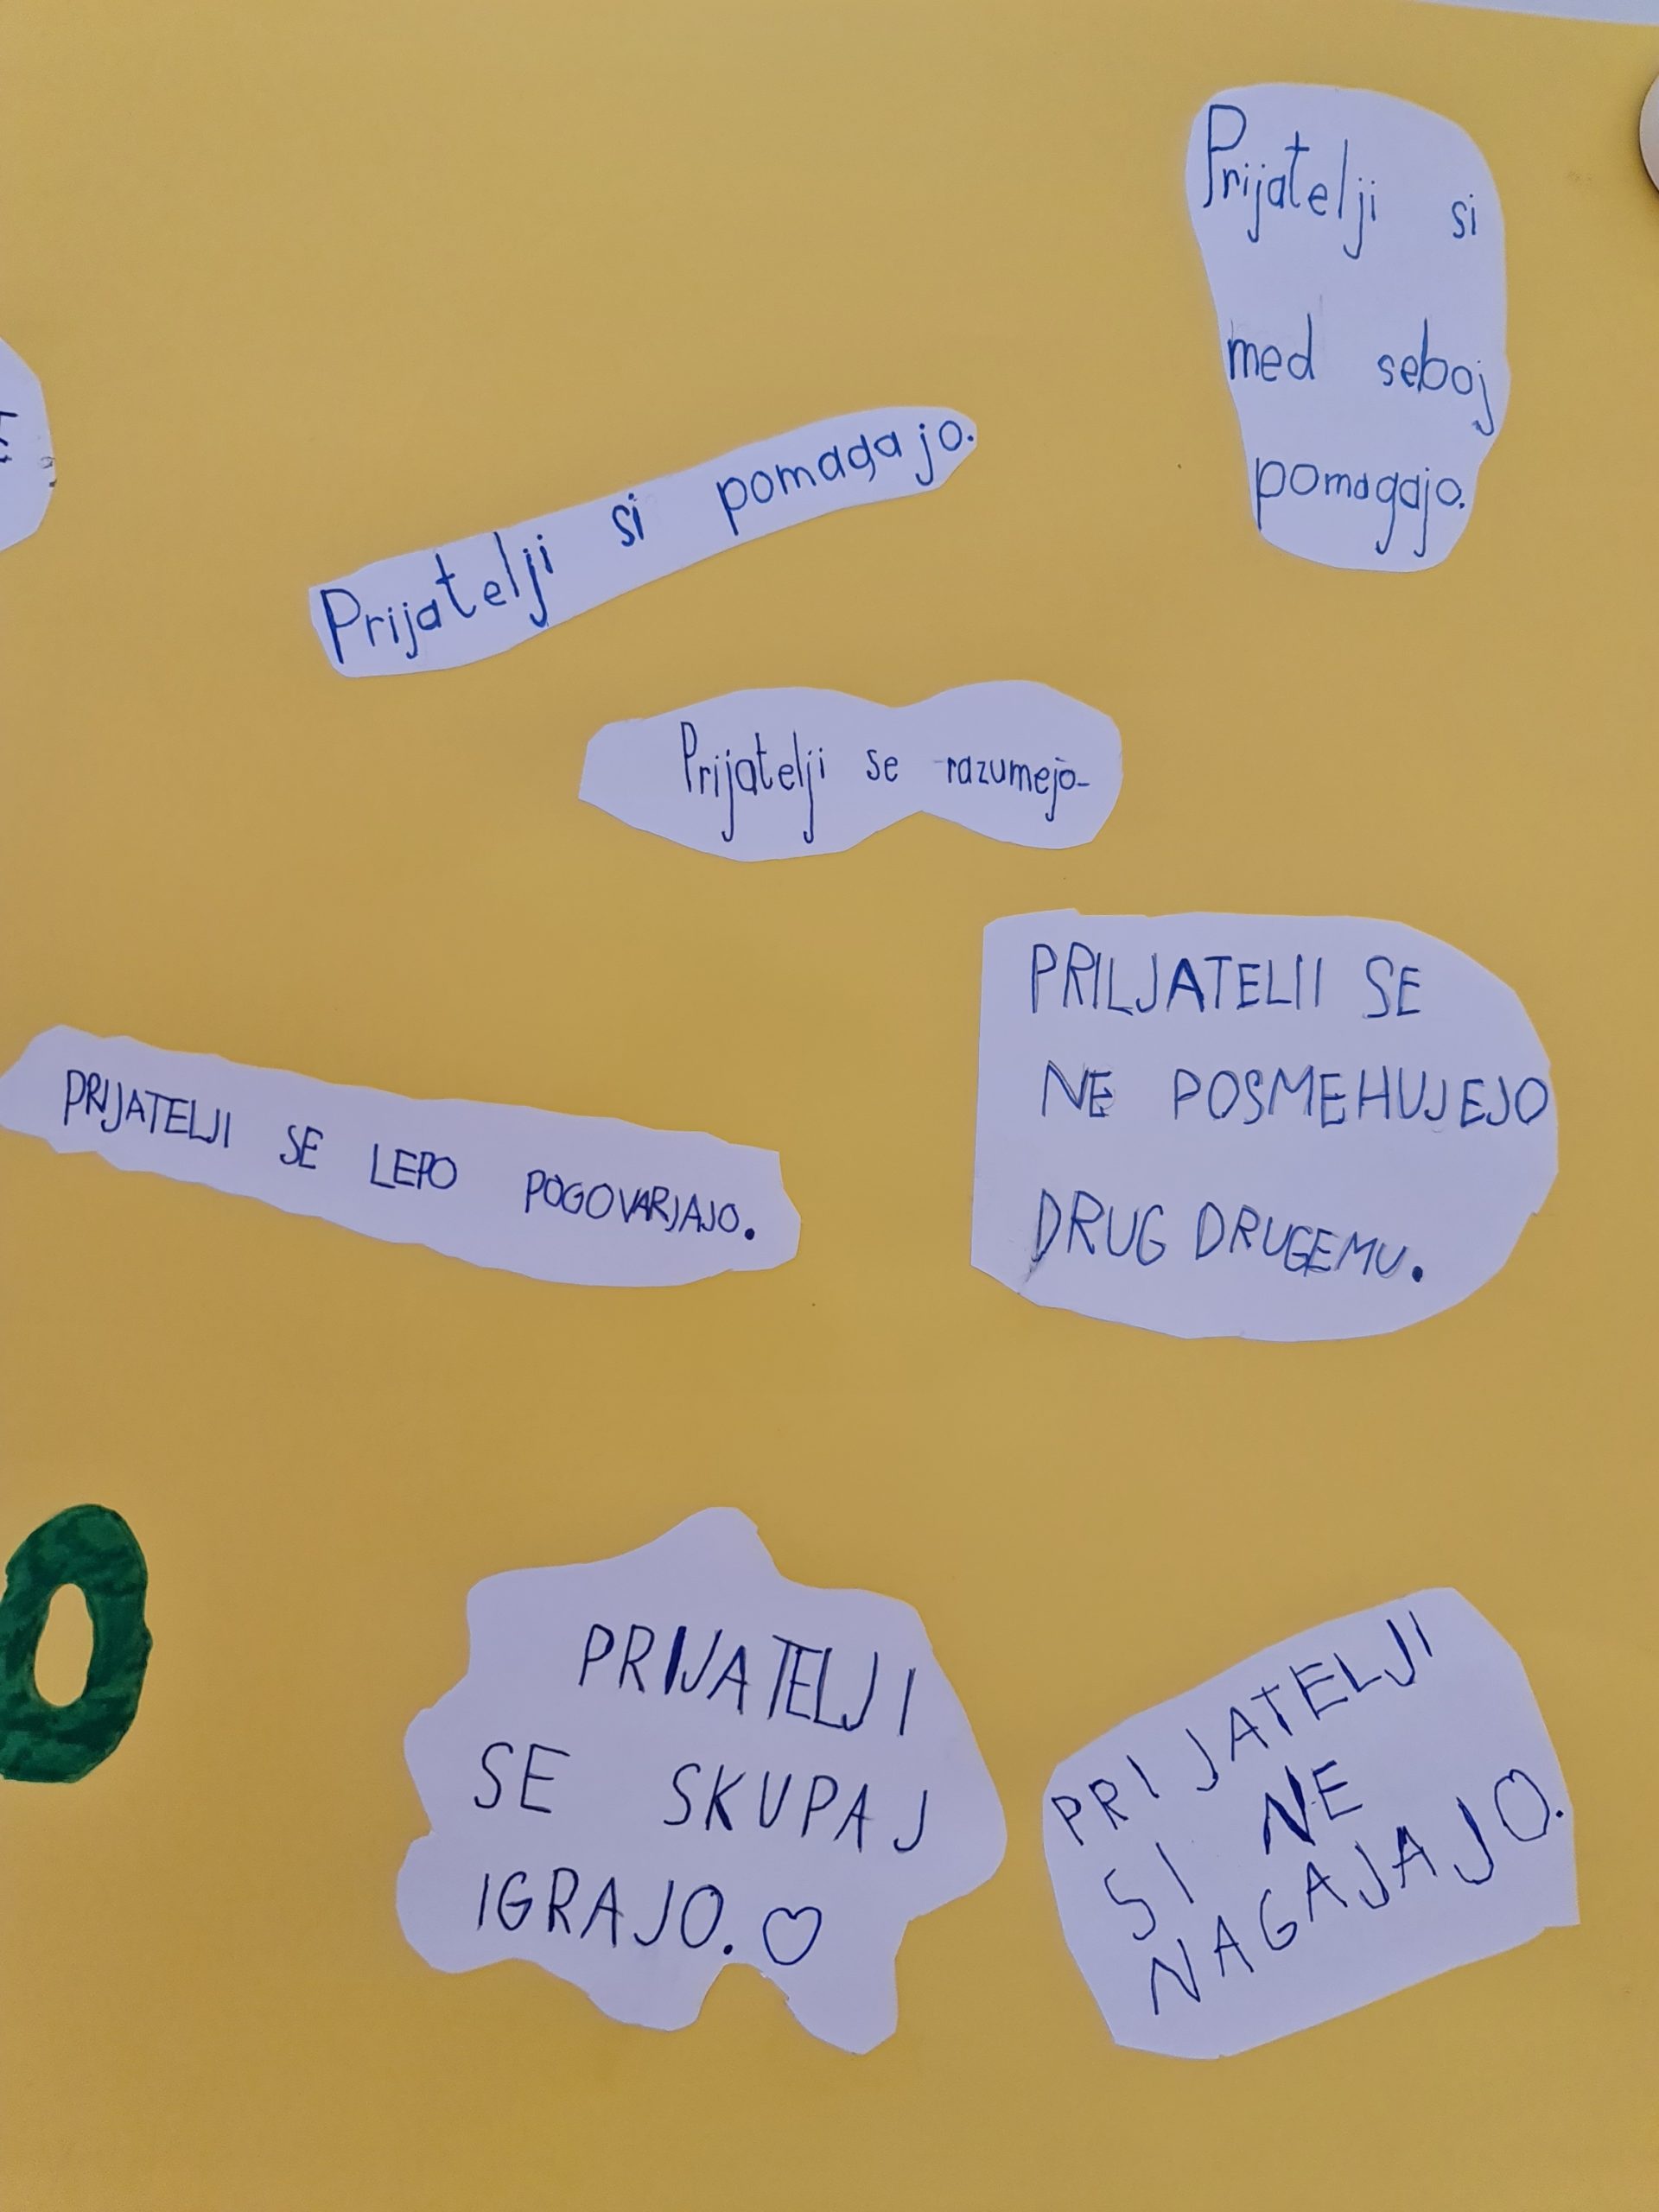 Prijatelji si
med seboj
pomagajo.
Prijatelji si pomagajo.
Prijatelji se razumejo.
PRILJATELII SE
NE POSMEHUJEJO
DRUG DRUGEMU.
PRIJATELJI SE LEPO POGOVARJAJO.
O
PRIJATELJI
SE SKUPAJ
IGRAJO.♡
PRIJATELJI
SI NE
NAGAJAJO.